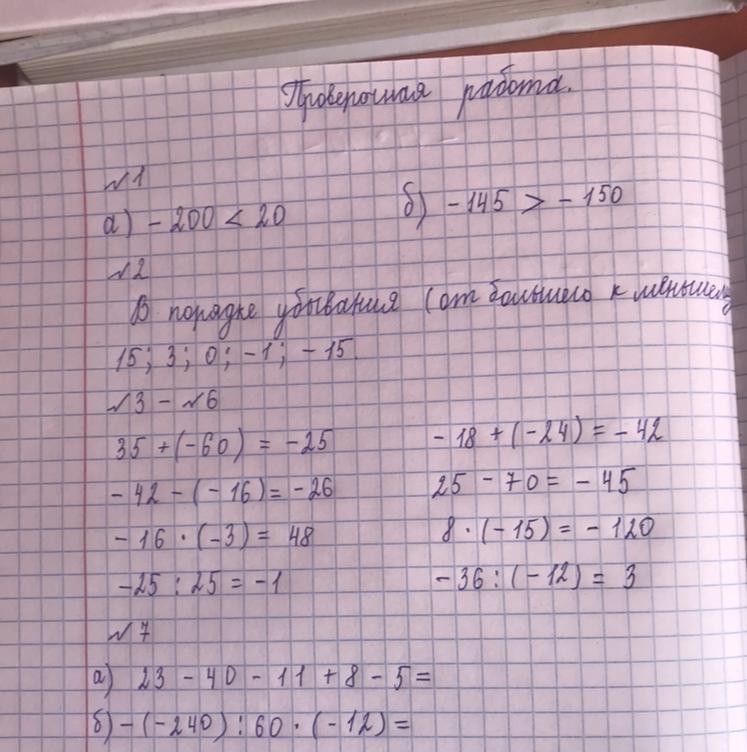 Проверочная работа.
№1
а) - 200 < 20 б) - 145 > - 150
№2
В порядке убывания (от большего к меньшему
15; 3; 0; -1; - 15.
№3 - №6
35 + (-60) = -25 - 18 + (-24) = - 42
- 42 - (- 16) = - 26 25 - 70 = - 45
- 16 · (-3) = 48 8 · (- 15) = - 120
-25 : 25 = -1 - 36 : (- 12) = 3
№7
а) 23 - 40 - 11 + 8 - 5 =
б) - (- 240) : 60 · (- 12) =